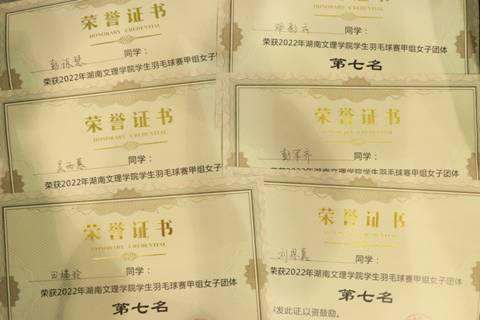 荣誉证书
HONORARY CREDENTIAL
同学：
荣获2022年湖南文理学院学生羽毛球赛甲组女子团体
同学：
荣获2022年湖南文理学院学生羽毛球赛甲组女子团体
第七名
荣誉证书
HONORARY CREDENTIAL
同学：
荣获2022年湖南文理学院学生羽毛球赛甲组女子团体
荣誉证书
HONORARY CREDENTIAL
同学：
荣获2022年湖南文理学院学生羽毛球赛甲组女子团体
荣誉证书
HONORARY CREDENTIAL
同学：
荣获2022年湖南文理学院学生羽毛球赛甲组女子团体
第七名
荣誉证书
HONORARY CREDENTIAL
同学：
荣获2022年湖南文理学院学生羽毛球赛甲组女子团体
第七名
发此证,以资鼓励。